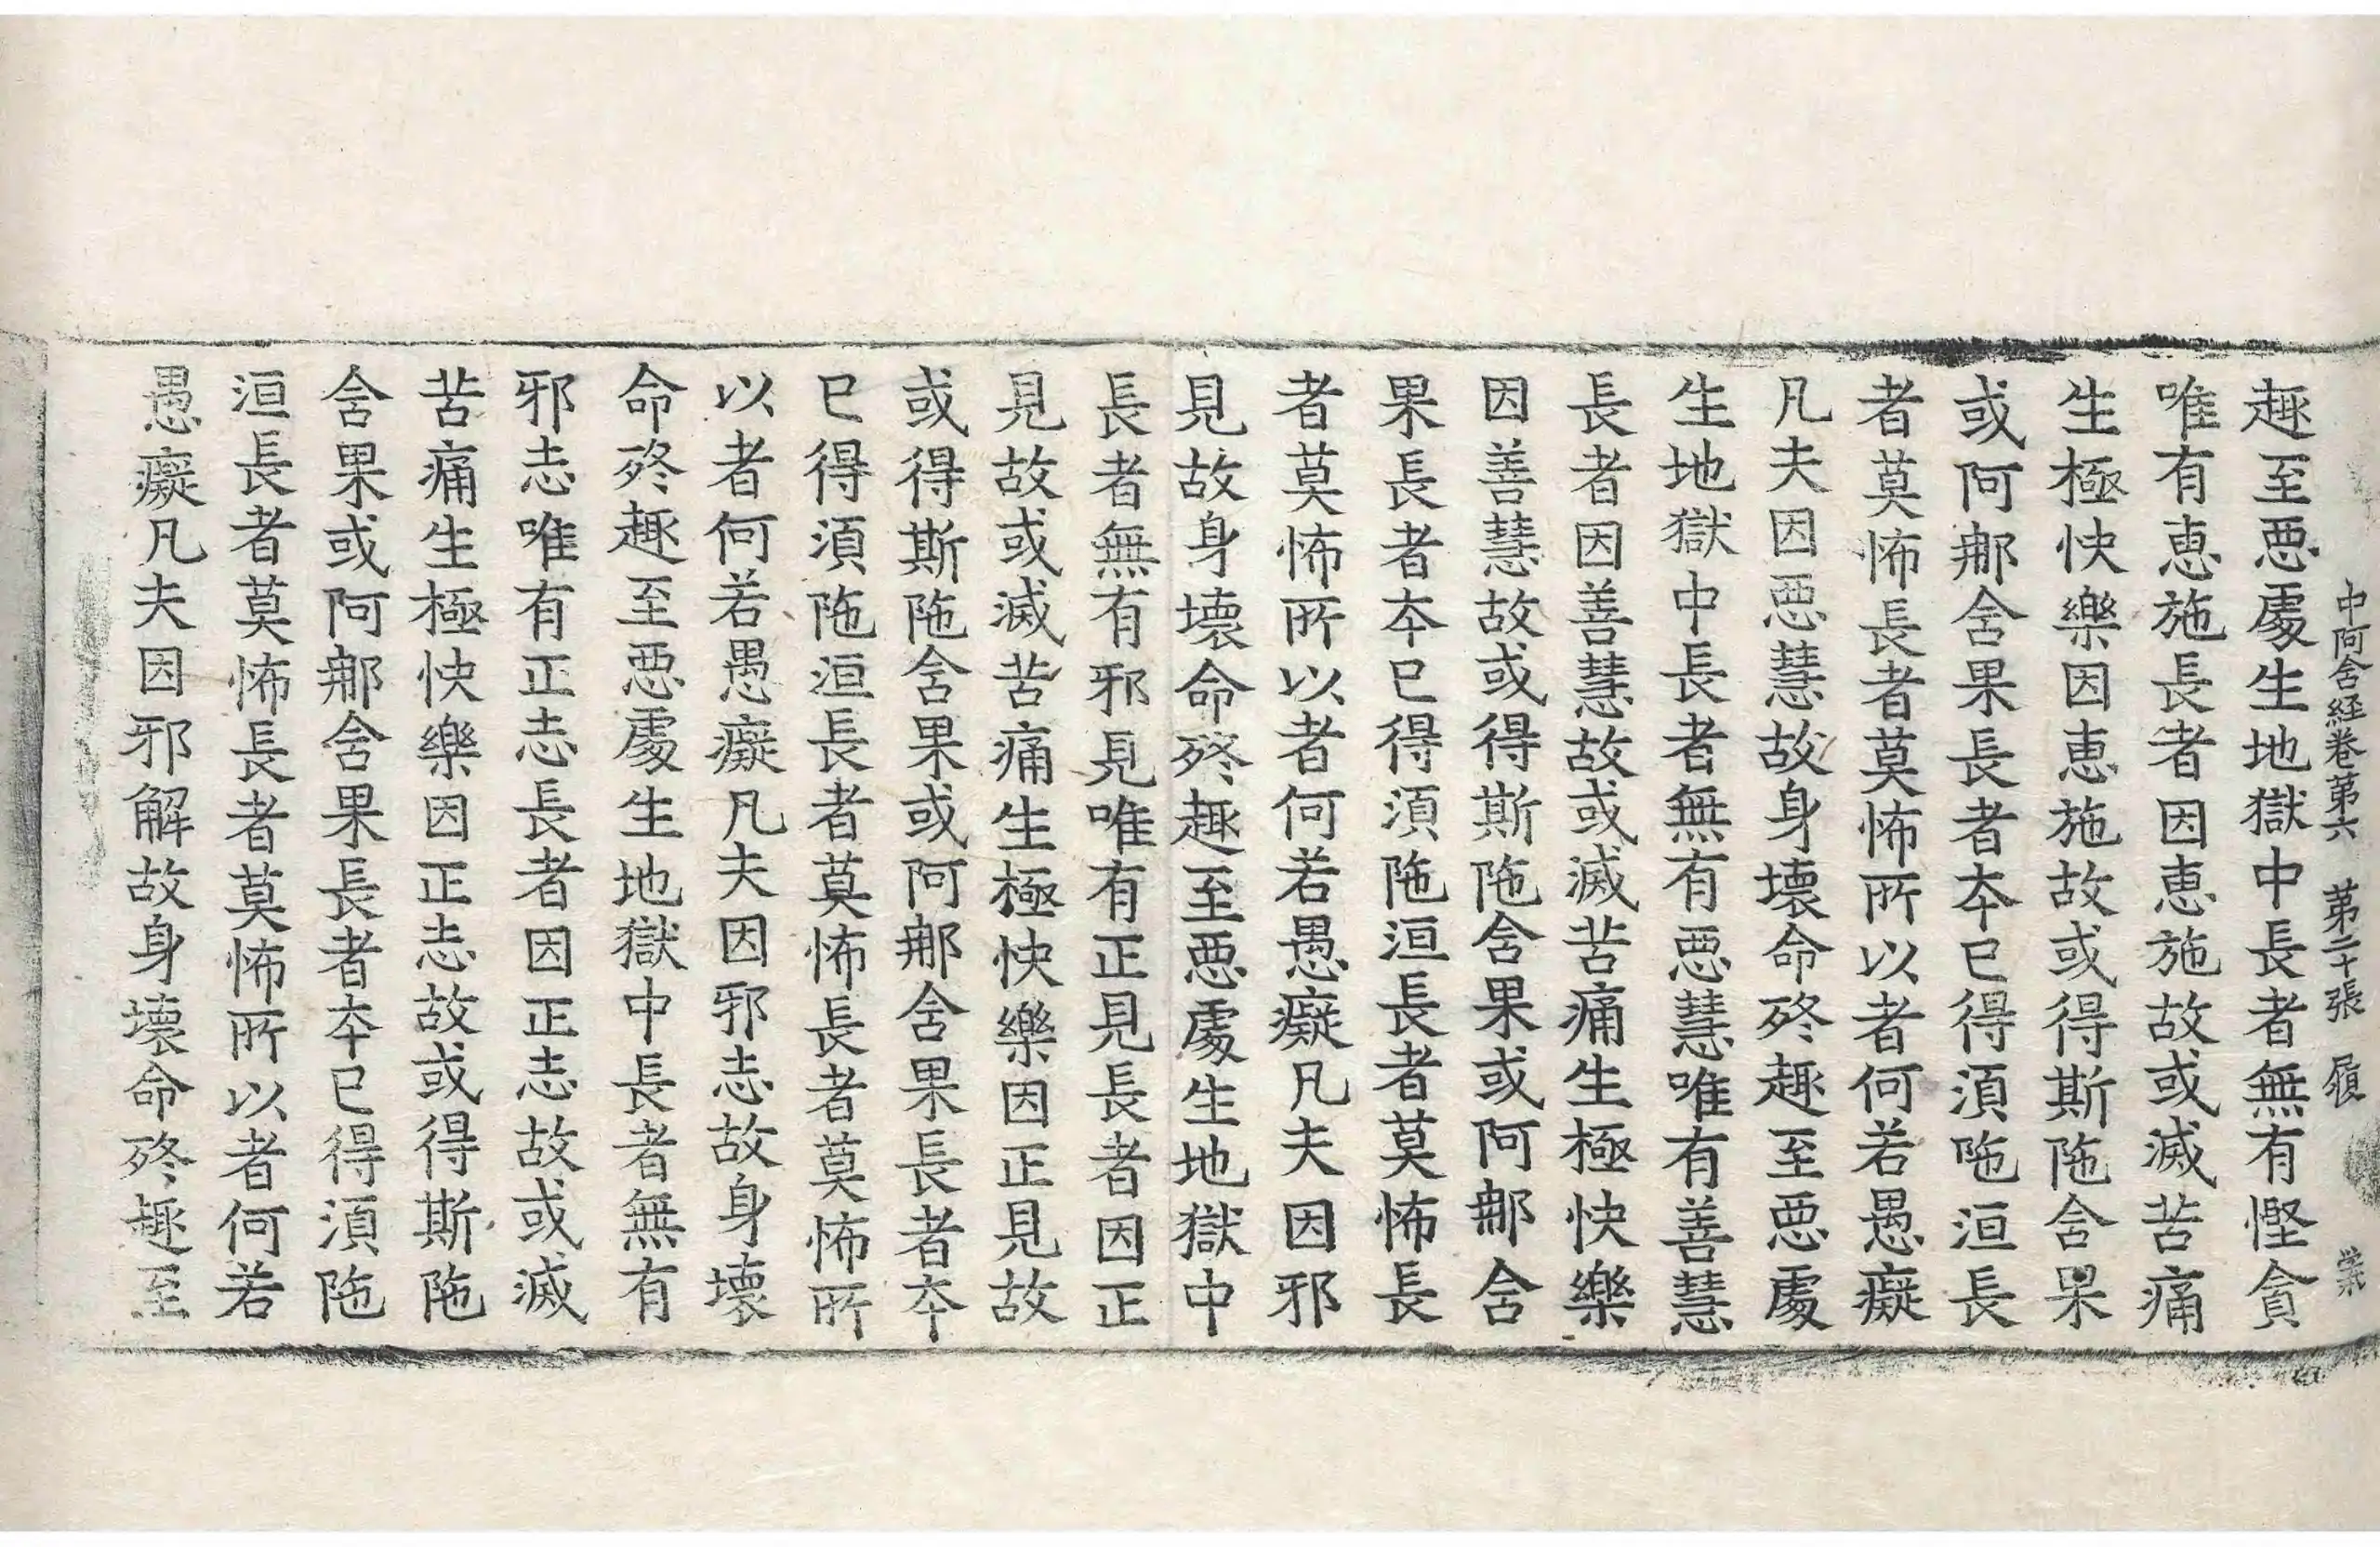 中阿含経巻第六　第二十張　履
趣至悪處生地獄中長者無有慳貪
唯有恵施長者因恵施故或滅苦痛
生極快樂因恵施故或得斯陁含果
或阿那含果長者本已得須陁洹長
者莫怖長者莫怖所以者何若愚癡
凡夫因悪慧故身壞命終趣至悪處
生地獄中長者無有悪慧唯有善慧
長者因善慧故或滅苦痛生極快樂
因善慧故或得斯陁含果或阿那含
果長者本已得須陁洹長者莫怖長
者莫怖所以者何若愚癡凡夫因邪
見故身壞命終趣至悪處生地獄中
長者無有邪見唯有正見長者因正
見故或滅苦痛生極快樂因正見故
或得斯陁含果或阿那含果長者本
已得須陁洹長者莫怖長者莫怖所
以者何若愚癡凡夫因邪志故身壞
命終趣至悪處生地獄中長者無有
邪志唯有正志長者因正志故或滅
苦痛生極快樂因正志故或得斯陁
含果或阿那含果長者本已得須陁
洹長者莫怖長者莫怖所以者何若
愚癡凡夫因邪解故身壞命終趣至